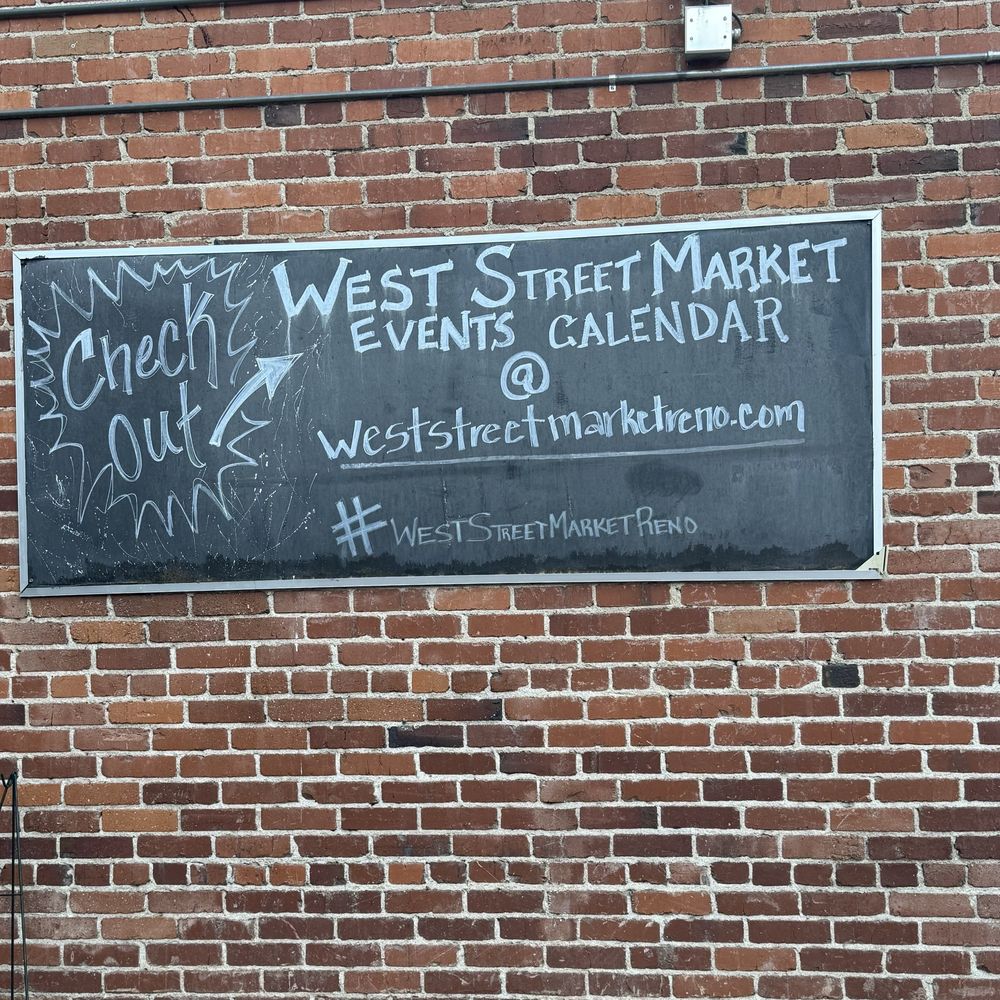 Check
Out
WEST STREET MARKET
EVENTS CALENDAR
@
weststreetmarketreno.com
#WESTSTREETMARKETRENO